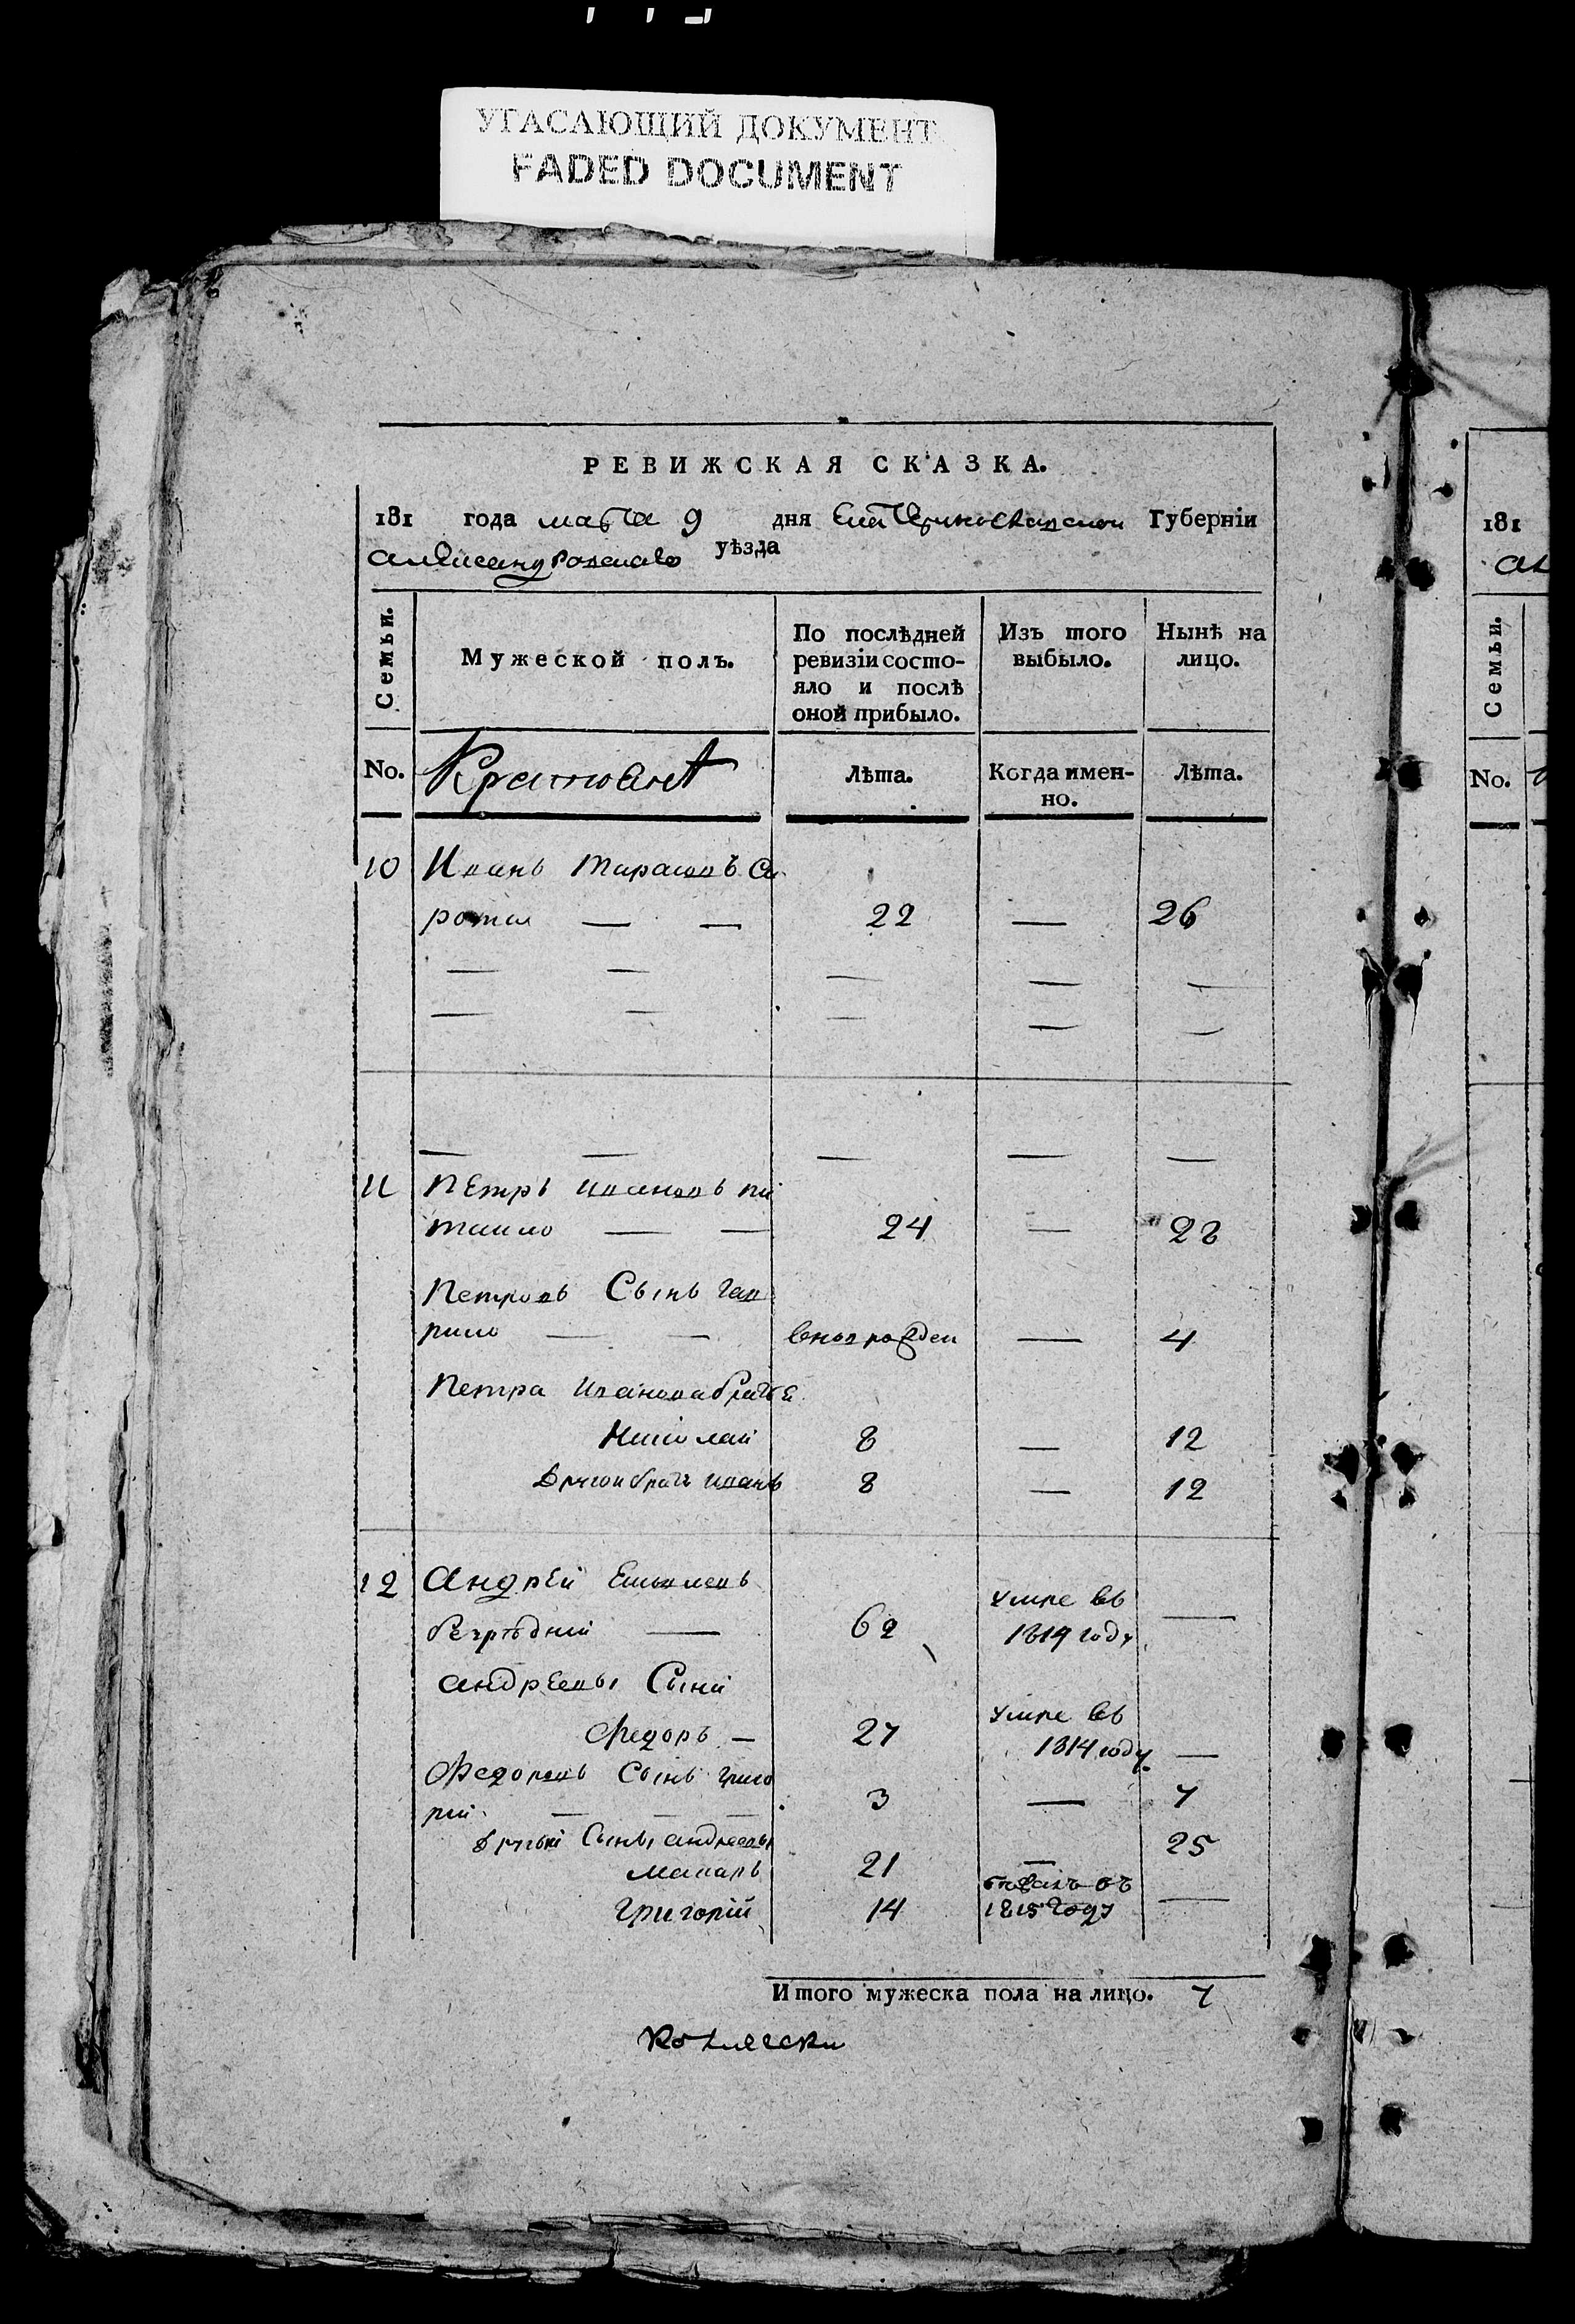 УГАСАЮЩИЙ ДОКУМЕНТ
FADED DOCUMENT
РЕВИЖСКАЯ СКАЗКА.
181 года маия 9 дня Екатеринославской Губерніи
александровскаго уѣзда
Семьи.
Мужеской полъ.
По послѣдней ревизіи состо-
яло и послѣ
оной прибыло.
Изъ того
выбыло.
Нынѣ на
лицо.
No.
Лѣта.
Когда имен-
но.
Лѣта.
10 Иванъ тарасовъ Си
рота — — 22 — 26
11 Петръ ивановъ пи
тайло — — 24 — 28
Петровъ Сынъ гав
рило — — вноврожден — 4
Петра Иванова братья
Николай 8 — 12
Другой братъ иванъ 8 — 12
12 Андрей
62 умре въ
1814 году —
андреевы Сыны
Федоръ — 27 умре въ
1814 году —
Федоровъ Сынъ григо
рій — — — 3 — 7
другіи Сыны андреевы
макаръ 21 — 25
Григорій 14 въ
1815 году —
Итого мужеска пола на лицо. 7
181
Семьи.
No.